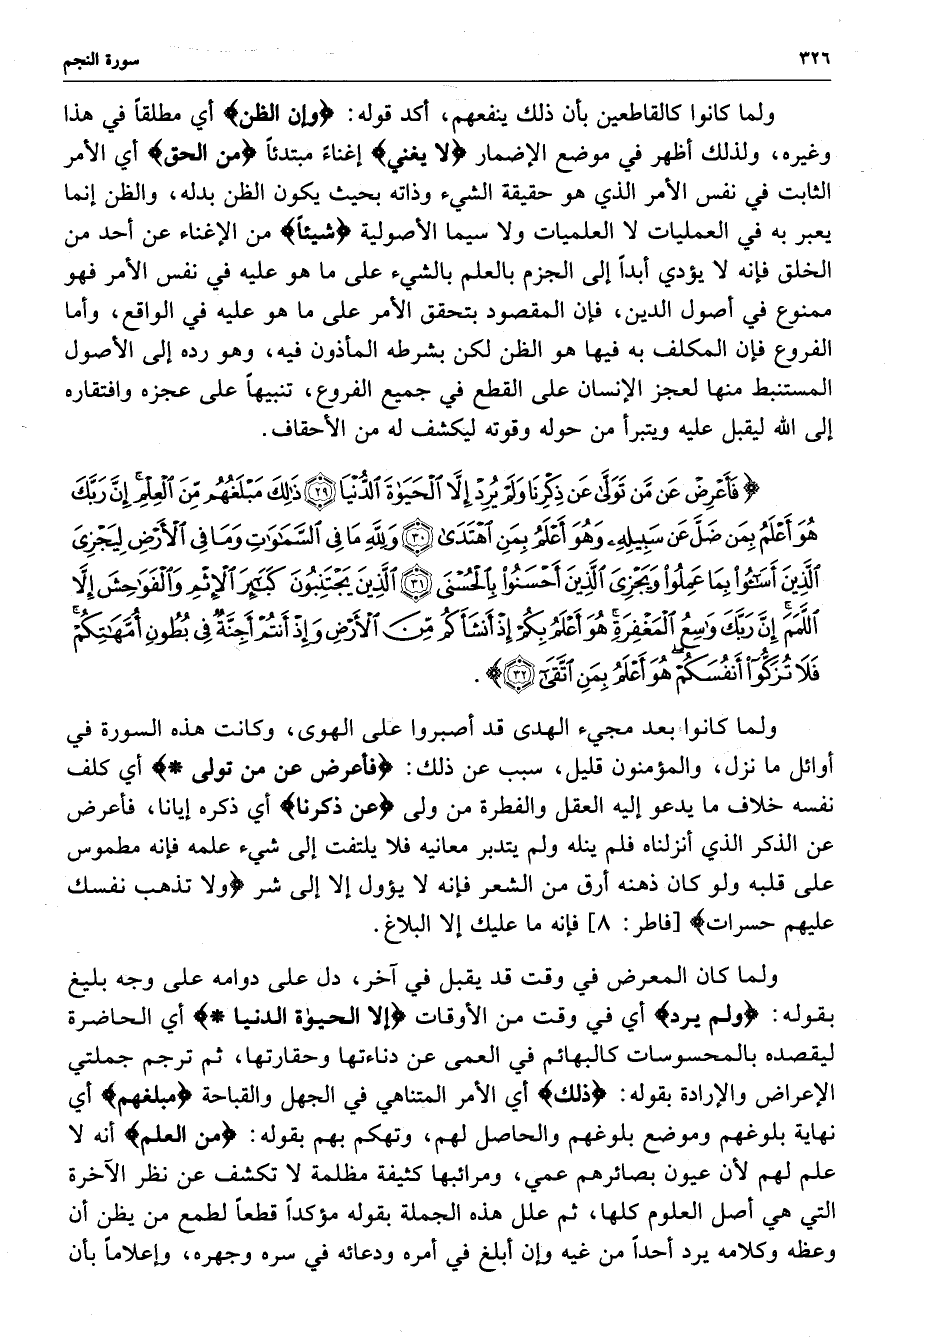 ٣٢٦ سورة النجم
ولما كانوا كالقاطعين بأن ذلك ينفعهم، أكد قوله: ﴿وإن الظن﴾ أي مطلقاً في هذا
وغيره، ولذلك أظهر في موضع الإضمار ﴿لا يغني﴾ إغناءً مبتدئاً ﴿من الحق﴾ أي الأمر
الثابت في نفس الأمر الذي هو حقيقة الشيء وذاته بحيث يكون الظن بدله، والظن إنما
يعبر به في العمليات لا العلميات ولا سيما الأصولية ﴿شيئاً﴾ من الإغناء عن أحد من
الخلق فإنه لا يؤدي أبداً إلى الجزم بالعلم بالشيء على ما هو عليه في نفس الأمر فهو
ممنوع في أصول الدين، فإن المقصود بتحقق الأمر على ما هو عليه في الواقع، وأما
الفروع فإن المكلف به فيها هو الظن لكن بشرطه المأذون فيه، وهو رده إلى الأصول
المستنبط منها لعجز الإنسان على القطع في جميع الفروع، تنبيهاً على عجزه وافتقاره
إلى الله ليقبل عليه ويتبرأ من حوله وقوته ليكشف له من الأحقاف.
﴿فَأَعْرِضْ عَن مَّن تَوَلَّىٰ عَن ذِكْرِنَا وَلَمْ يُرِدْ إِلَّا ٱلْحَيَوٰةَ ٱلدُّنْيَا ﴿٢٩﴾ ذَٰلِكَ مَبْلَغُهُم مِّنَ ٱلْعِلْمِ ۚ إِنَّ رَبَّكَ
هُوَ أَعْلَمُ بِمَن ضَلَّ عَن سَبِيلِهِۦ وَهُوَ أَعْلَمُ بِمَنِ ٱهْتَدَىٰ ﴿٣٠﴾ وَلِلَّهِ مَا فِى ٱلسَّمَـٰوَٰتِ وَمَا فِى ٱلْأَرْضِ لِيَجْزِىَ
ٱلَّذِينَ أَسَـٰٓـُٔوا۟ بِمَا عَمِلُوا۟ وَيَجْزِىَ ٱلَّذِينَ أَحْسَنُوا۟ بِٱلْحُسْنَى ﴿٣١﴾ ٱلَّذِينَ يَجْتَنِبُونَ كَبَـٰٓئِرَ ٱلْإِثْمِ وَٱلْفَوَٰحِشَ إِلَّا
ٱللَّمَمَ ۚ إِنَّ رَبَّكَ وَٰسِعُ ٱلْمَغْفِرَةِ ۚ هُوَ أَعْلَمُ بِكُمْ إِذْ أَنشَأَكُم مِّنَ ٱلْأَرْضِ وَإِذْ أَنتُمْ أَجِنَّةٌ فِى بُطُونِ أُمَّهَـٰتِكُمْ ۖ
فَلَا تُزَكُّوٓا۟ أَنفُسَكُمْ ۖ هُوَ أَعْلَمُ بِمَنِ ٱتَّقَىٰٓ ﴿٣٢﴾﴾.
ولما كانوا بعد مجيء الهدى قد أصبروا على الهوى، وكانت هذه السورة في
أوائل ما نزل، والمؤمنون قليل، سبب عن ذلك: ﴿فأعرض عن من تولى *﴾ أي كلف
نفسه خلاف ما يدعو إليه العقل والفطرة من ولى ﴿عن ذكرنا﴾ أي ذكره إيانا، فأعرض
عن الذكر الذي أنزلناه فلم ينله ولم يتدبر معانيه فلا يلتفت إلى شيء علمه فإنه مطموس
على قلبه ولو كان ذهنه أرق من الشعر فإنه لا يؤول إلا إلى شر ﴿ولا تذهب نفسك
عليهم حسرات﴾ [فاطر: ٨] فإنه ما عليك إلا البلاغ.
ولما كان المعرض في وقت قد يقبل في آخر، دل على دوامه على وجه بليغ
بقوله: ﴿ولم يرد﴾ أي في وقت من الأوقات ﴿إلا الحيوٰة الدنيا *﴾ أي الحاضرة
ليقصده بالمحسوسات كالبهائم في العمى عن دناءتها وحقارتها، ثم ترجم جملتي
الإعراض والإرادة بقوله: ﴿ذلك﴾ أي الأمر المتناهي في الجهل والقباحة ﴿مبلغهم﴾ أي
نهاية بلوغهم وموضع بلوغهم والحاصل لهم، وتهكم بهم بقوله: ﴿من العلم﴾ أنه لا
علم لهم لأن عيون بصائرهم عمي، ومرائيها كثيفة مظلمة لا تكشف عن نظر الآخرة
التي هي أصل العلوم كلها، ثم علل هذه الجملة بقوله مؤكداً قطعاً لطمع من يظن أن
وعظه وكلامه يرد أحداً من غيه وإن أبلغ في أمره ودعائه في سره وجهره، وإعلاماً بأن